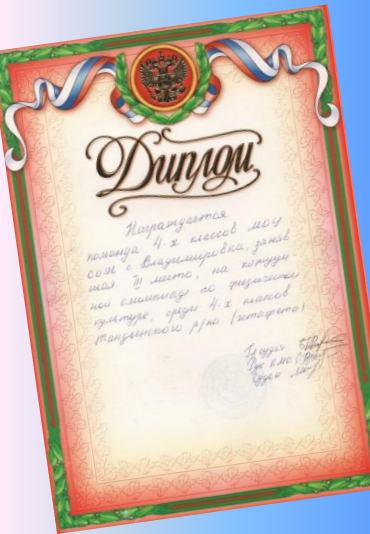 Диплом
Награждается
команда 4-х классов МОУ
СОШ с. Владимировка, заняв
шая III место, на
ной олимпиаде по физической
культуре, среди 4-х классов
р/на (эстафета)